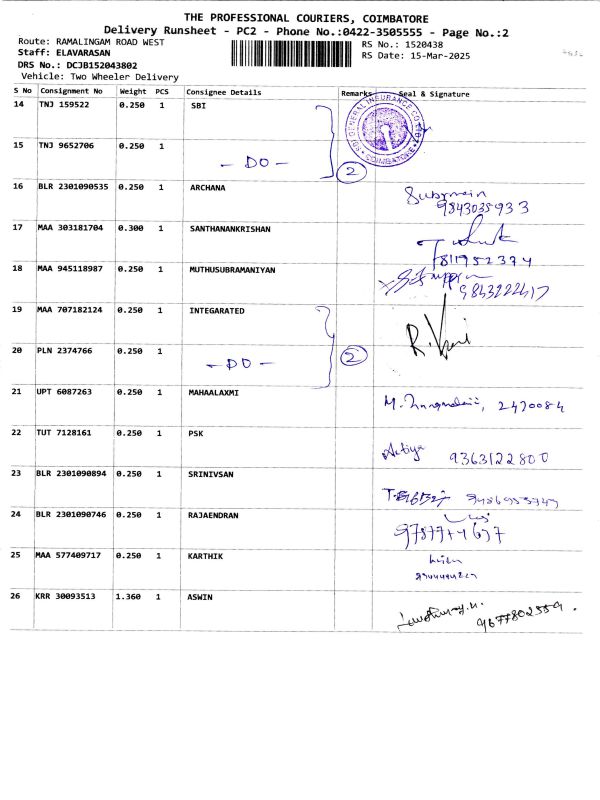 THE PROFESSIONAL COURIERS, COIMBATORE
Delivery Runsheet - PC2 - Phone No.:0422-3505555 - Page No.:2
Route: RAMALINGAM ROAD WEST
RS No.: 1520438
Staff: ELAVARASAN
RS Date: 15-Mar-2025
DRS No.: DCJB152043802
Vehicle: Two Wheeler Delivery
S No Consignment No Weight PCS Consignee Details Remarks Seal & Signature
14 TNJ 159522 0.250 1 SBI
SBI GENERAL INSURANCE CO LTD
COIMBATORE
15 TNJ 9652706 0.250 1 - DO - 2
16 BLR 2301090535 0.250 1 ARCHANA
9843035933
17 MAA 303181704 0.300 1 SANTHANANKRISHAN
7811952374
18 MAA 945118987 0.250 1 MUTHUSUBRAMANIYAN
9843222417
19 MAA 707182124 0.250 1 INTEGARATED
R. Vani
20 PLN 2374766 0.250 1 - DO - 2
21 UPT 6087263 0.250 1 MAHAALAXMI
M. 2470084
22 TUT 7128161 0.250 1 PSK
9363122800
23 BLR 2301090894 0.250 1 SRINIVSAN
24 BLR 2301090746 0.250 1 RAJAENDRAN
25 MAA 577409717 0.250 1 KARTHIK
26 KRR 30093513 1.360 1 ASWIN
9677802559.